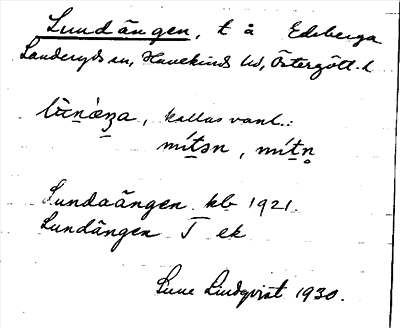 Lundängen, t å Edeberga
Landeryds sn, Hanekinds hd, Östergötl. l
kallas vanl.:
mítən, mítn̥
Lundaängen kb 1921.
Lundängen T ek
Sune Lindqvist 1930.